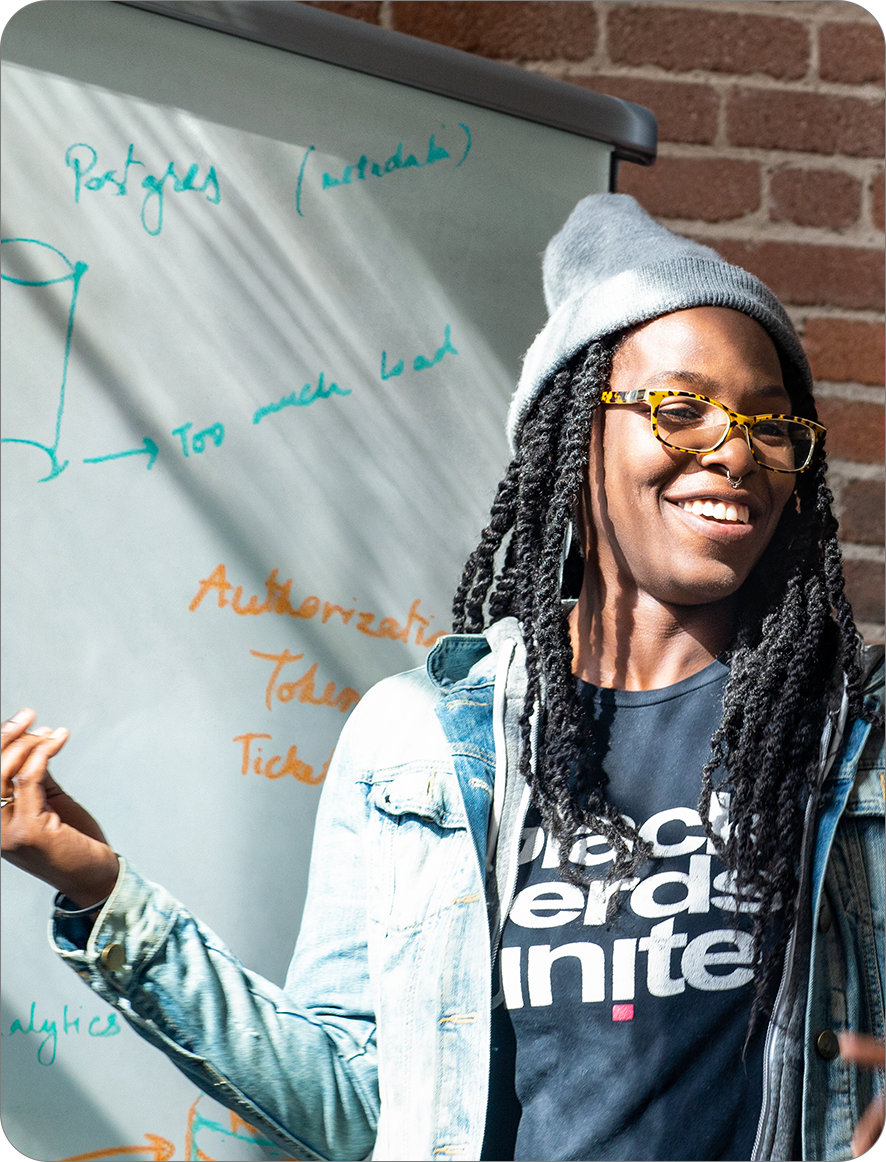 Postgres (metadata)
Too much load
Authorizatio
Token
Ticket
alytics
black
nerds
unite